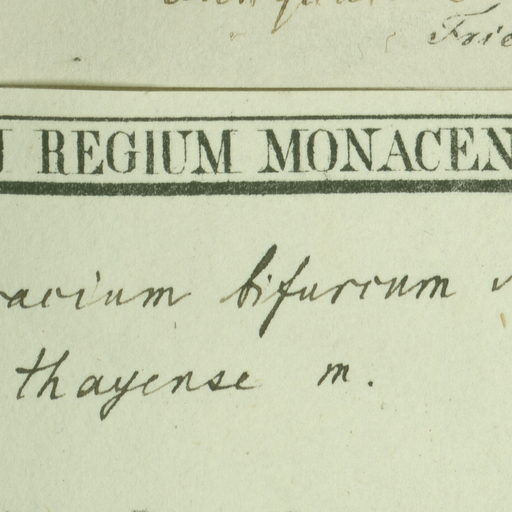 Frie
REGIUM MONACEN
acium bifurcum
thayense m.